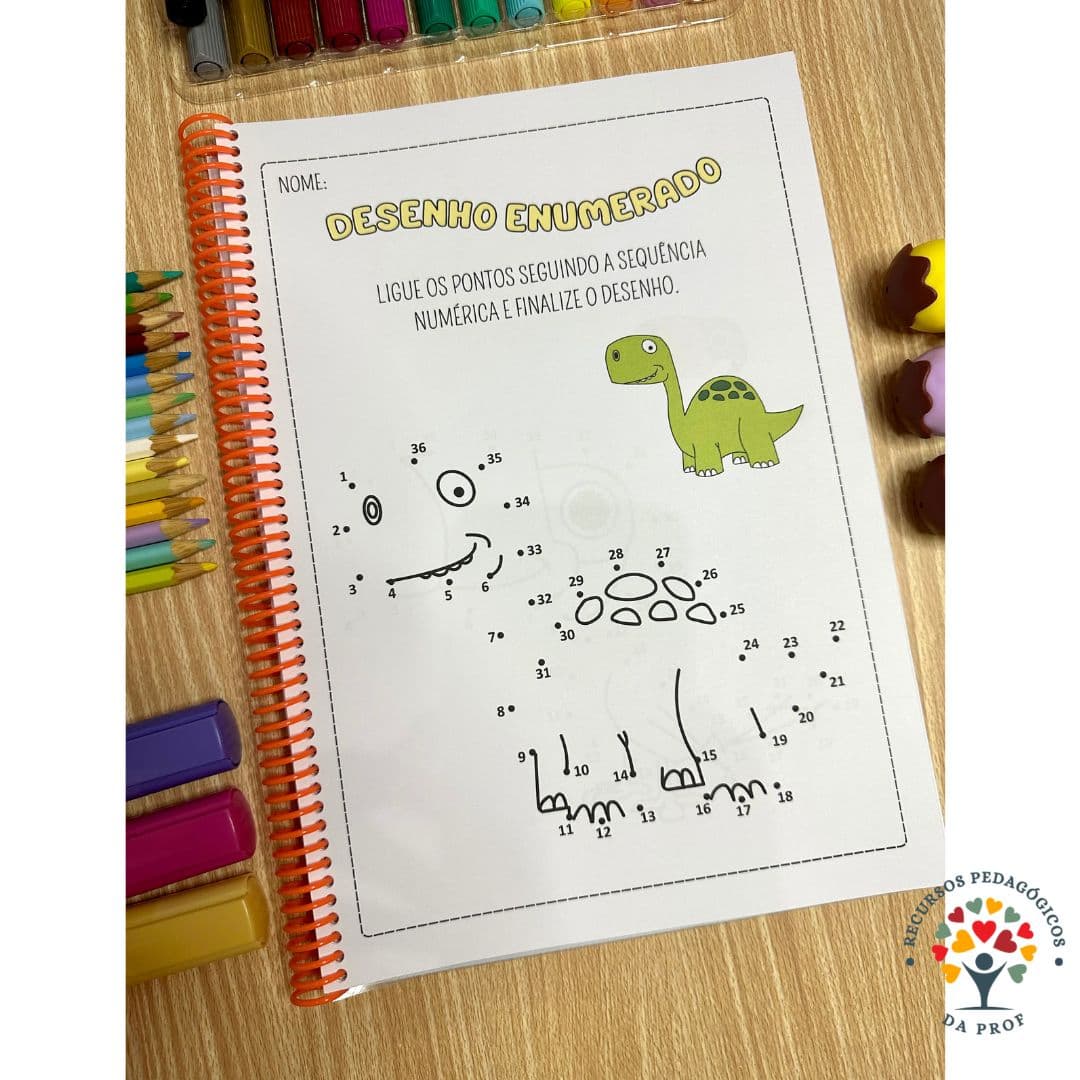 NOME:
DESENHO ENUMERADO
LIGUE OS PONTOS SEGUINDO A SEQUÊNCIA
NUMÉRICA E FINALIZE O DESENHO.
36
35
1
34
2
33
3
4
5
6
32
28
27
26
29
25
7
30
31
24
23
22
21
8
20
19
9
10
14
15
11
12
13
16
17
18
RECURSOS PEDAGÓGICOS
DA PROF